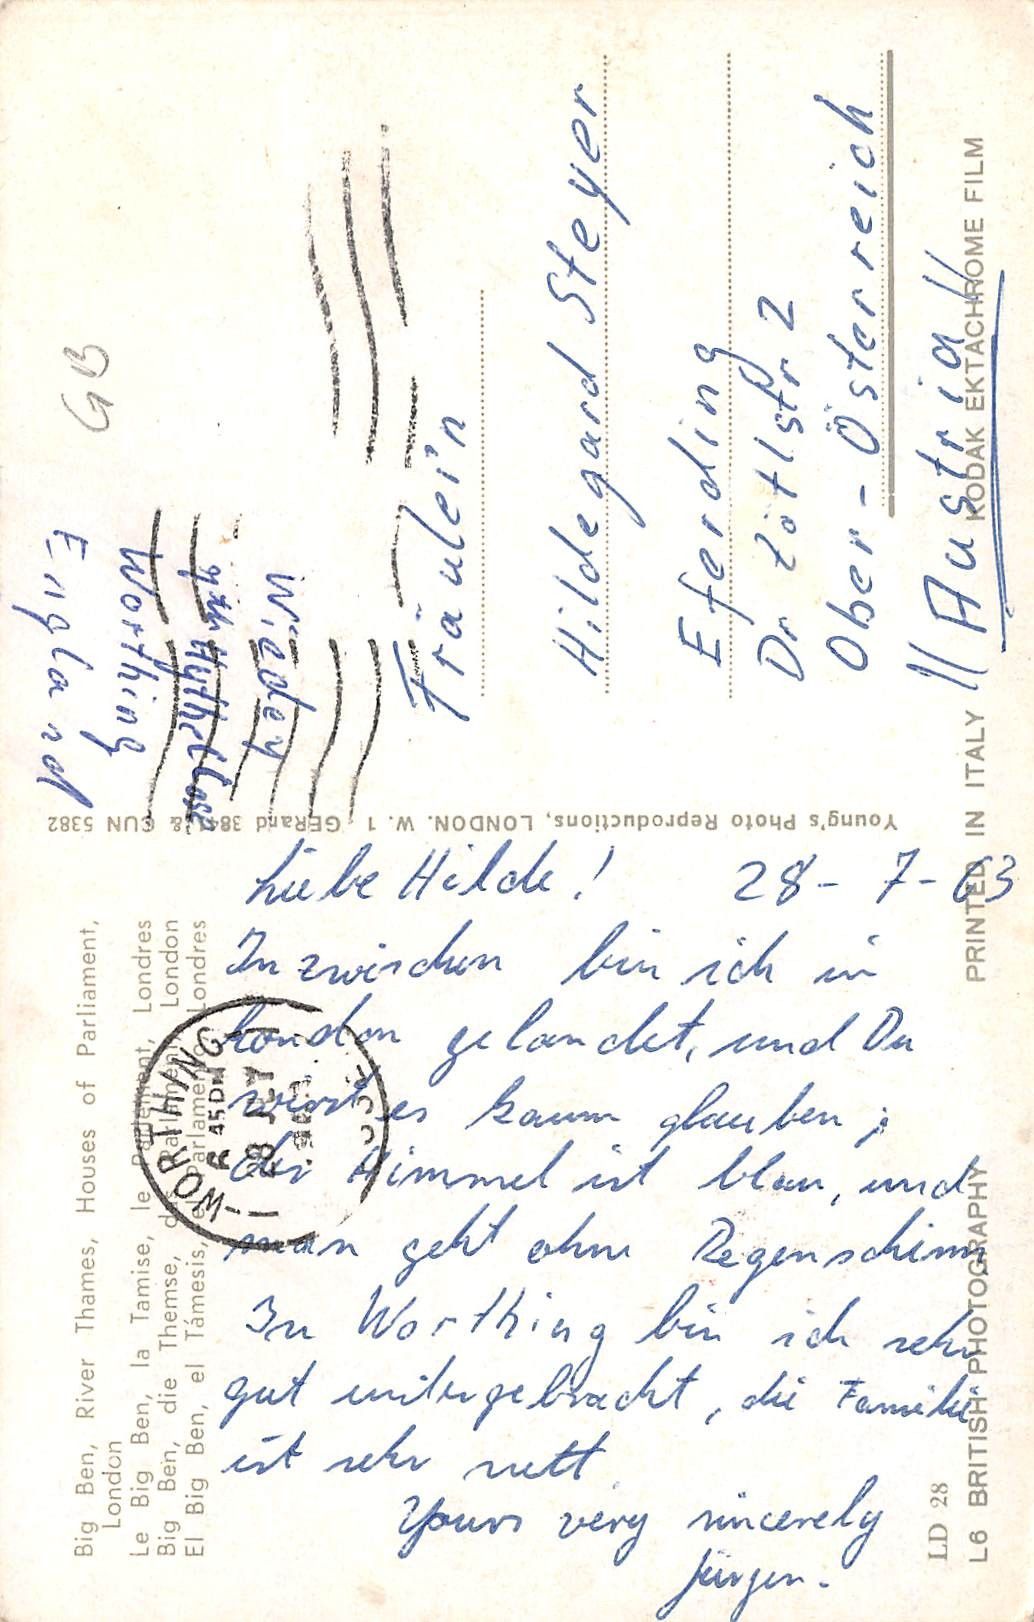 Liebe Hilde! 28-7-63
Inzwischen bin ich in
London gelandet, und Du
wirst es kaum glauben;
der Himmel ist blau, und
man geht ohne Regenschirm
In Worthing bin ich sehr
gut untergebracht, die Familie
ist sehr nett
Yours very sincerely
Jürgen.
Fräulein
Hildegard Steyer
Eferding
Dr
Ober-Österreich
Austria
Close
Worthing
England
GB
WORTHING
SUSSEX
Big Ben, River Thames, Houses of Parliament,
London
Le Big Ben, la Tamise, le Parlement, Londres
Big Ben, die Themse, das Parlament, London
El Big Ben, el Támesis, el Parlamento, Londres
Young's Photo Reproductions, LONDON. W. 1 GERard & CUN 5382
LD 28
L6 BRITISH PHOTOGRAPHY PRINTED IN ITALY KODAK EKTACHROME FILM